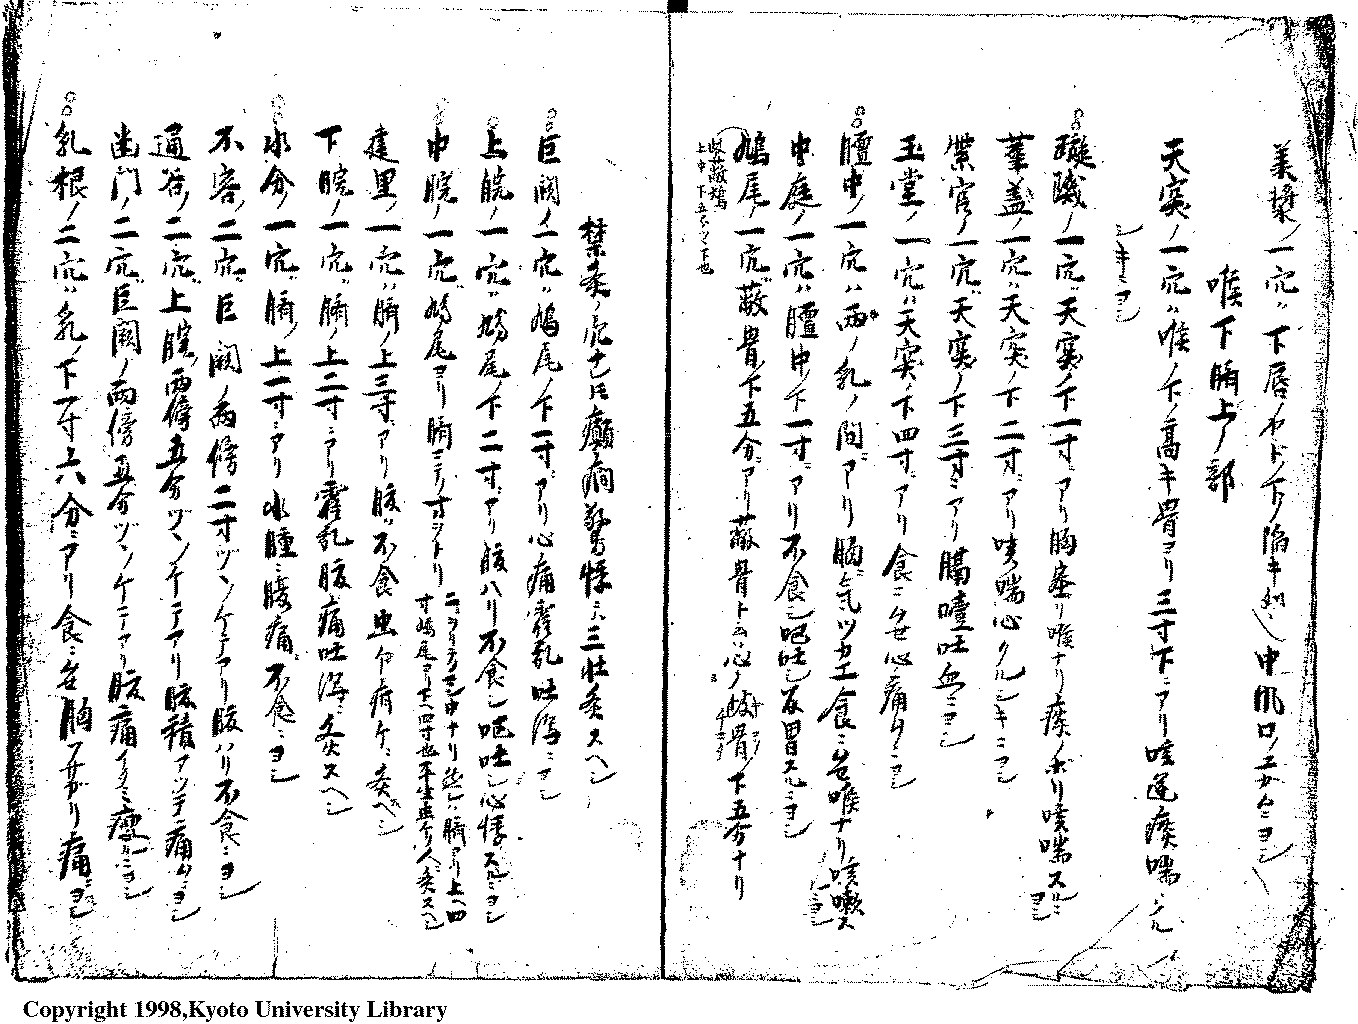 美漿ノ一穴ハ下唇ノ下ノ陥キ中風口ノユガムニヨシ
喉下臍上ノ部
天突ノ一穴ハ喉ノ下ノ高キ骨ヨリ三寸下ニアリ咳逆痰喘
シキニヨシ
璇璣ノ一穴ハ天突ノ下一寸ニアリ胸塞リ喉ナリ痰ノボリ咳喘スルニヨシ
華盖ノ一穴ハ天突ノ下二寸ニアリ咳喘心クルシキニヨシ
紫宮ノ一穴ハ天突ノ下三寸ニアリ膈噎吐血ニヨシ
玉堂ノ一穴ハ天突ノ下四寸ニアリ食ニムセ心痛ムニヨシ
膻中ノ一穴ハ両ノ乳ノ間ニアリ胸気ツカエ食ニムセ喉ナリ咳嗽スルニヨシ
中庭ノ一穴ハ膻中ノ下一寸ニアリ不食シ吧吐シ反胃スルニヨシ
鳩尾ノ一穴ハ蔽骨ノ下五分ニアリ蔽骨トハ心ノ岐骨ノ下五分ナリ
蔽骨
上中下五分ツヽ下也
禁灸ノ穴ナレ𪜈癲癇驚悸ニハ三壮灸スヘシ
巨闕ノ一穴ハ鳩尾ノ下一寸ニアリ心痛霍乱吐瀉ニヨシ
上脘ノ一穴ハ鳩尾ノ下二寸ニアリ腹ハリ不食シ吧吐シ心悸スルニヨシ
中脘ノ一穴ハ鳩尾ヨリ臍マテノ寸ヲトリ
中ナリ然レハ臍ヨリ上ヘ四
寸鳩尾ヨリ下ヘ四寸也平生無病ノ人ハ灸スヘシ
建里ノ一穴ハ臍ノ上三寸ニアリ腹ハリ不食虫ノ病ケニ灸ベシ
下脘ノ一穴ハ臍ノ上二寸ニアリ霍乱腹痛吐瀉ニ灸スヘシ
水分ノ一穴ハ臍ノ上一寸ニアリ水腫ニ腹痛不食ニヨシ
不容ノ二穴ハ巨闕ノ両傍二寸ヅヽノケテアリ腹ハリ不食ニヨシ
通谷ノ二穴ハ上脘ノ両傍五分ヅヽノケテアリ腹積アツテ痛ムニヨシ
歯門ノ二穴ハ巨闕ノ両傍五分ヅヽノケテアリ腹痛イタミニヨシ
乳根ノ二穴ハ乳ノ下一寸六分ニアリ食ニムセ胸フサガリ痛ニヨシ
Copyright 1998,Kyoto University Library